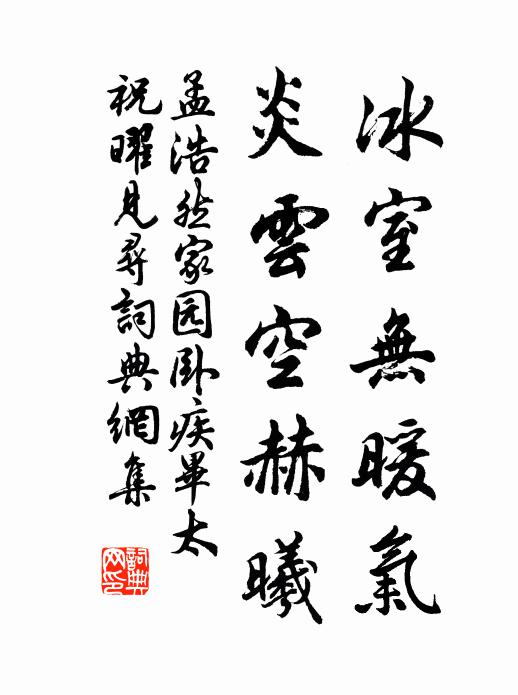 冰室無暖氣
炎雲空赫曦
孟浩然家园卧疾畢太
祝曜見尋詞典網集
詞典网印